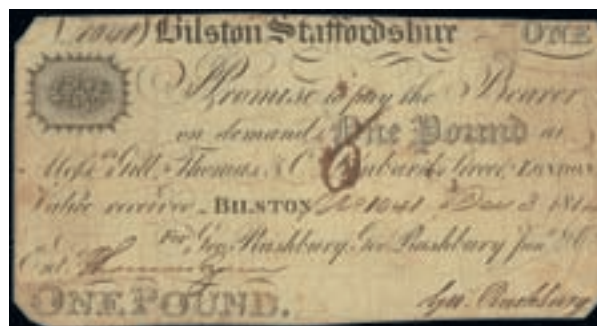 (1041) Bilston Staffordshire ONE
I Promise to pay the Bearer
on demand One Pound at
Mess.rs Gill, Thomas & C.o Lombard Street, LONDON
Value received BILSTON No 1041 Dec 3 1814
For Geo. Rushbury, Geo. Rushbury Jun.r & Co
Ent.
ONE POUND. Geo. Rushbury